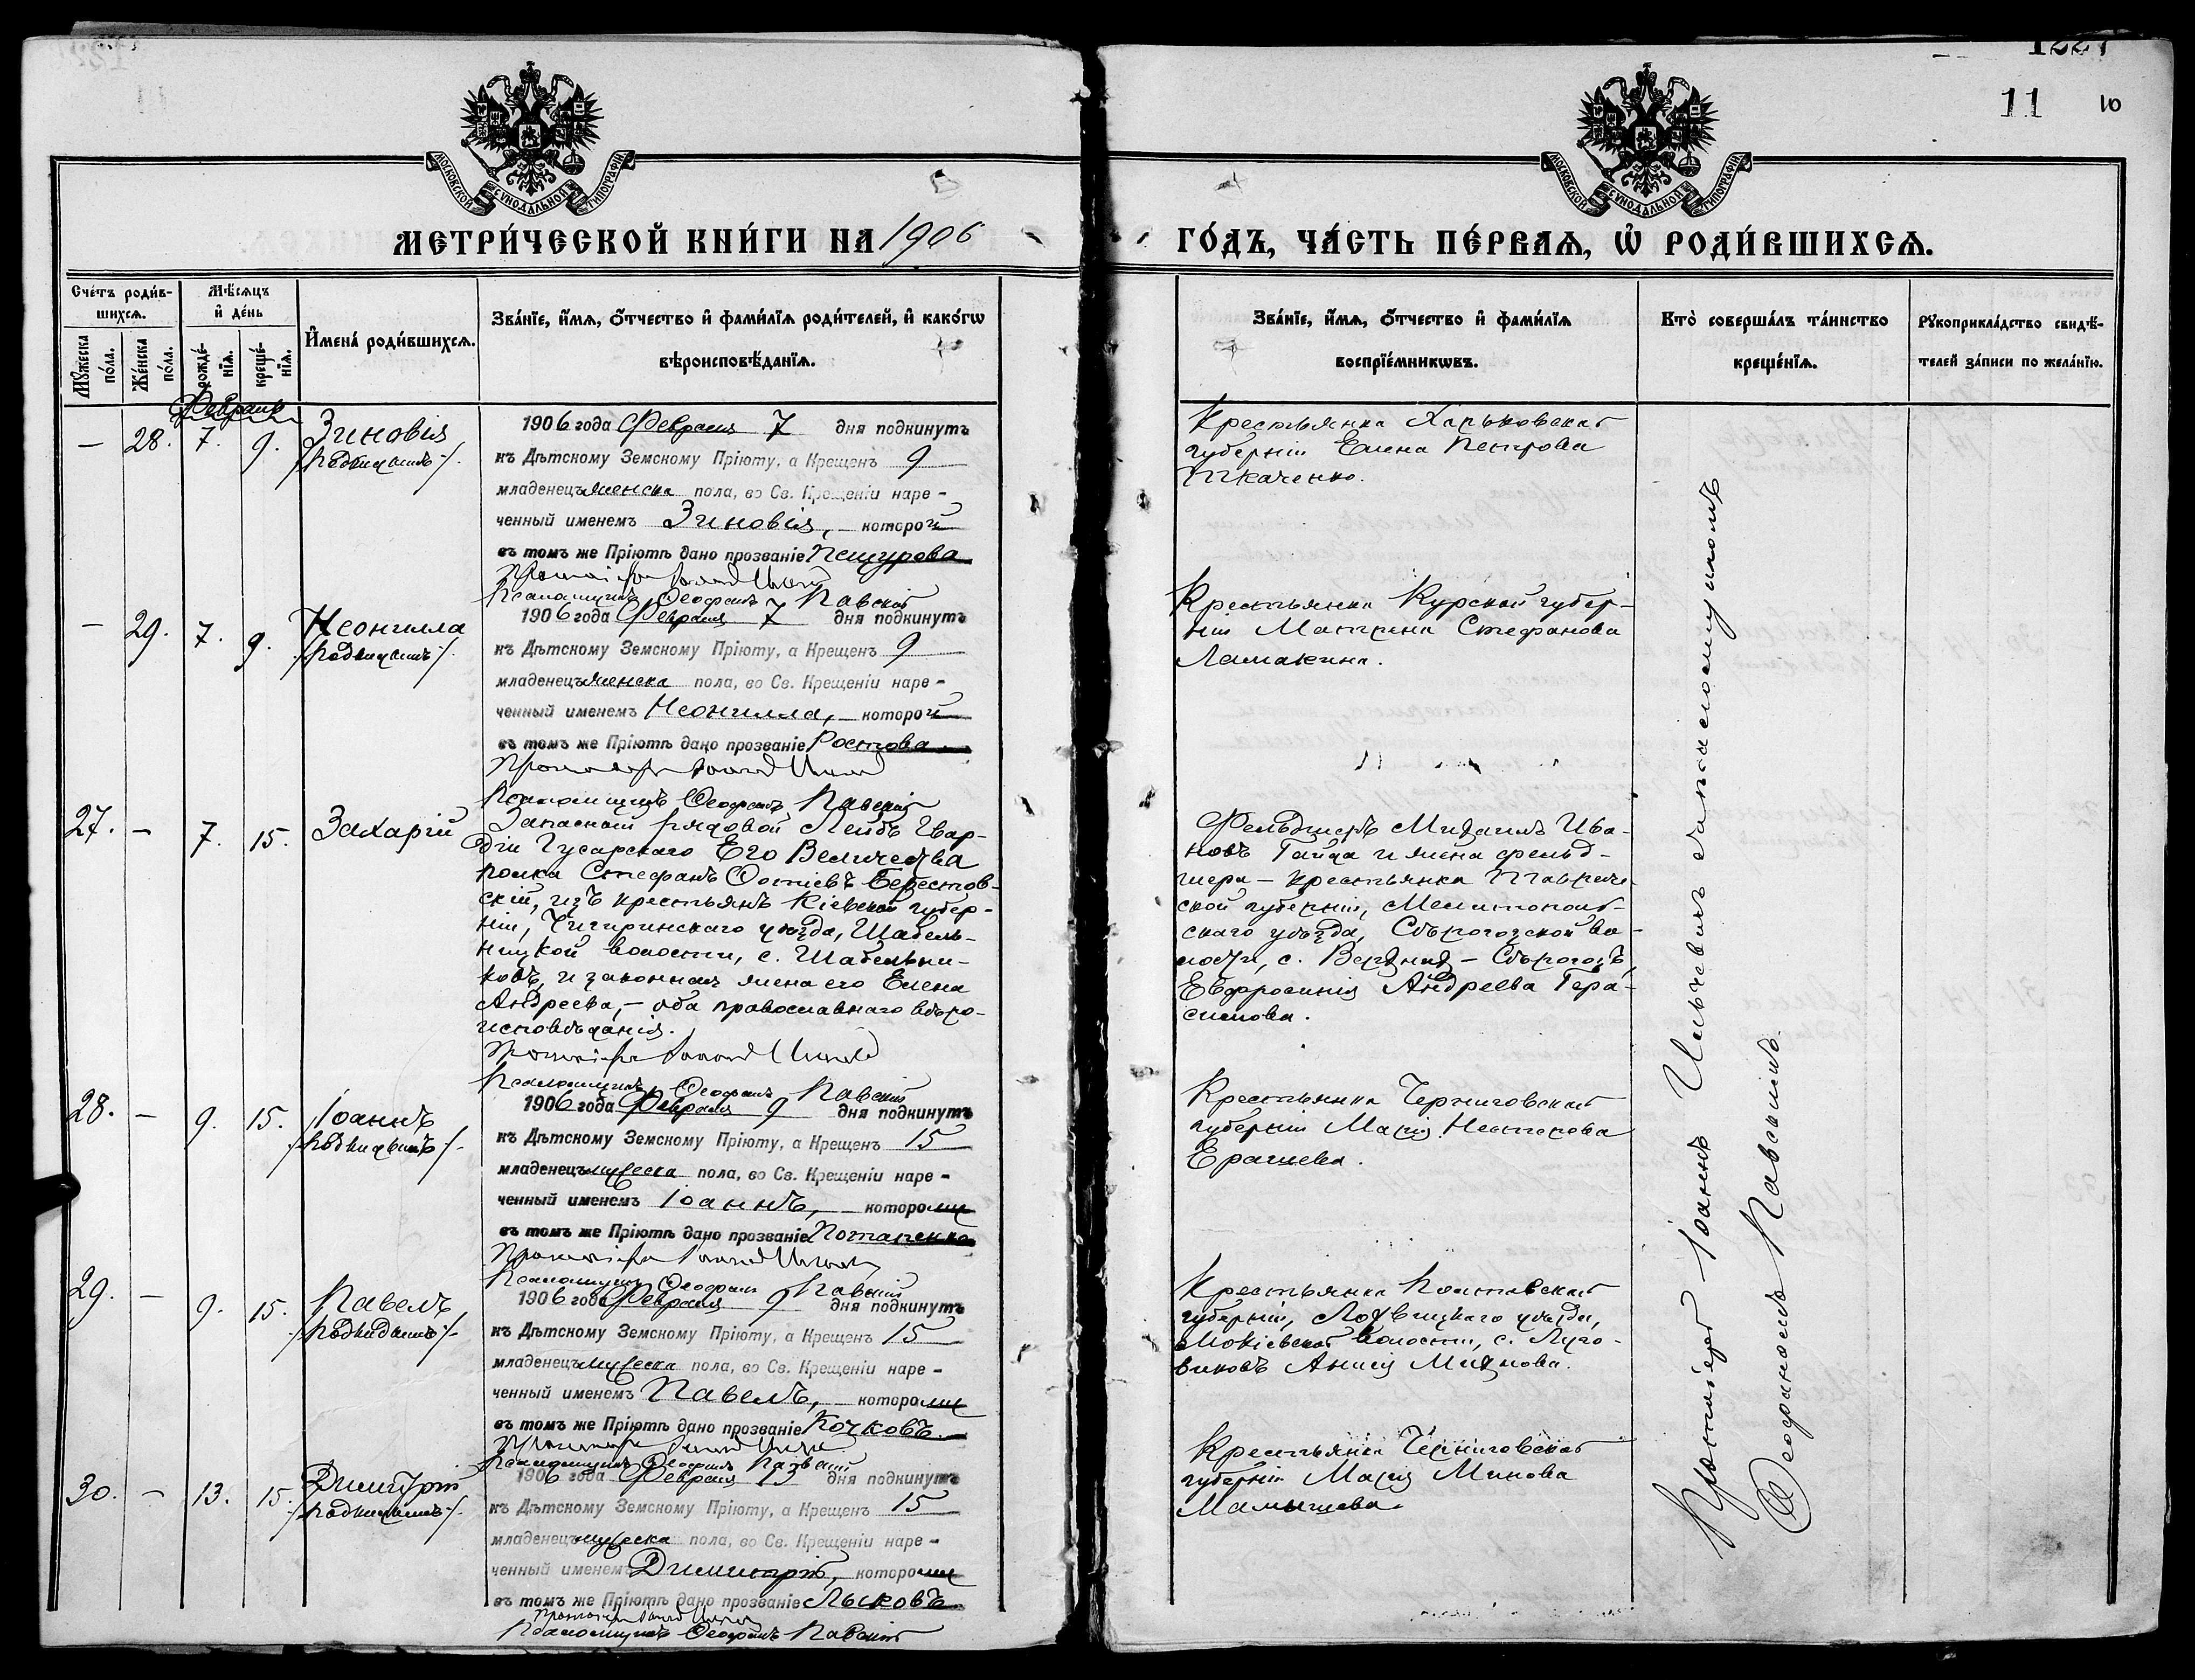 1227
11 10
МОСКОВСКОЙ СѴНОДАЛЬНОЙ ТИПОГРАФІИ
МОСКОВСКОЙ СѴНОДАЛЬНОЙ ТИПОГРАФІИ
МЕТРИ́ЧЕСКОЙ КНИ́ГИ НА 1906
ГО́ДЪ, ЧА́СТЬ ПЕ́РВАѦ, Ѡ҆ РОДИ́ВШИХСѦ.
Сче́тъ роди́в-
шихсѧ.
Мꙋ́жеска по́ла.
Же́нска по́ла.
Мѣ́сѧцъ
и҆ де́нь
рожде́-
нїѧ.
креще́-
нїѧ.
И҆мена̀ роди́вшихсѧ.
Зва́нїе, и҆́мѧ, ѻ҆́тчество и҆ фами́лїѧ роди́телей, и҆ како́гѡ
вѣроисповѣ́данїѧ.
Зва́нїе, и҆́мѧ, ѻ҆́тчество и҆ фами́лїѧ
воспрїе́мникѡвъ.
Кто̀ соверша́лъ та́инство
креще́нїѧ.
Рꙋкоприкла́дство свидѣ́-
телей за́писи по жела́нїю.
Февраль
— 28. 7. 9. Зиновія
/подкидышъ/.
1906 года Февраля 7 дня подкинутъ
къ Дѣтскому Земскому Пріюту, а Крещенъ 9
младенецъ женска пола, во Св. Крещеніи наре-
ченный именемъ Зиновія, — которой
въ томъ же Пріютѣ дано прозваніе Пещурова
Псаломщикъ Ѳеофанъ Павскій
Крестьянка Харьковской
губерніи Елена Петрова
Ткаченко.
— 29. 7. 9. Неонилла
/подкидышъ/.
1906 года Февраля 7 дня подкинутъ
къ Дѣтскому Земскому Пріюту, а Крещенъ 9
младенецъ женска пола, во Св. Крещеніи наре-
ченный именемъ Неонилла, — которой
въ томъ же Пріютѣ дано прозваніе Ростова
Псаломщикъ Ѳеофанъ Павскій
Крестьянка Курской губер-
ніи Матрена Стефанова
Ламакина.
27. — 7. 15. Захарій
Запасный рядовой Лейбъ Гвар-
діи Гусарскаго Его Величества
полка Стефанъ Ѳотіевъ Берестов-
скій, изъ крестьянъ Кіевской губер-
ніи, Чигиринскаго уѣзда, Шабель-
ницкой волости, с. Шабельни-
ковъ, и законная жена его Елена
Андреева, — оба православнаго вѣро-
исповѣданія.
Псаломщикъ Ѳеофанъ Павскій
Фельдшеръ Михаилъ Ива-
новъ Гайда и жена фельд-
шера — крестьянка Тавриче-
ской губерніи, Мелитополь-
скаго уѣзда, Сѣрогозской во-
лости, с. Верхнихъ — Сѣрогозъ
Евфросинія Андреева Гера-
симова.
28. — 9. 15. Іоаннъ
/подкидышъ/.
1906 года Февраля 9 дня подкинутъ
къ Дѣтскому Земскому Пріюту, а Крещенъ 15
младенецъ мужеска пола, во Св. Крещеніи наре-
ченный именемъ Іоаннъ, — которому
въ томъ же Пріютѣ дано прозваніе Потапенко
Псаломщикъ Ѳеофанъ Павскій
Крестьянка Черниговской
губерніи Марія Нестерова
29. — 9. 15. Павелъ
/подкидышъ/.
1906 года Февраля 9 дня подкинутъ
къ Дѣтскому Земскому Пріюту, а Крещенъ 15
младенецъ мужеска пола, во Св. Крещеніи наре-
ченный именемъ Павелъ, — которому
въ томъ же Пріютѣ дано прозваніе Кочковъ.
Псаломщикъ Ѳеофанъ Павскій
Крестьянка Полтавской
губерніи, Лохвицкаго уѣзда,
волости, с. Луго-
виковъ Анисія
30. — 13. 15. Димитрій
/подкидышъ/.
1906 года Февраля 13 дня подкинутъ
къ Дѣтскому Земскому Пріюту, а Крещенъ 15
младенецъ мужеска пола, во Св. Крещеніи наре-
ченный именемъ Димитрій, — которому
въ томъ же Пріютѣ дано прозваніе Лысковъ
Псаломщикъ Ѳеофанъ Павскій
Крестьянка Черниговской
губерніи Марія Минова
Мамышева.
Протоіерей Іоаннъ Ильчевичъ съ псаломщикомъ
Ѳеофаномъ Павскимъ.